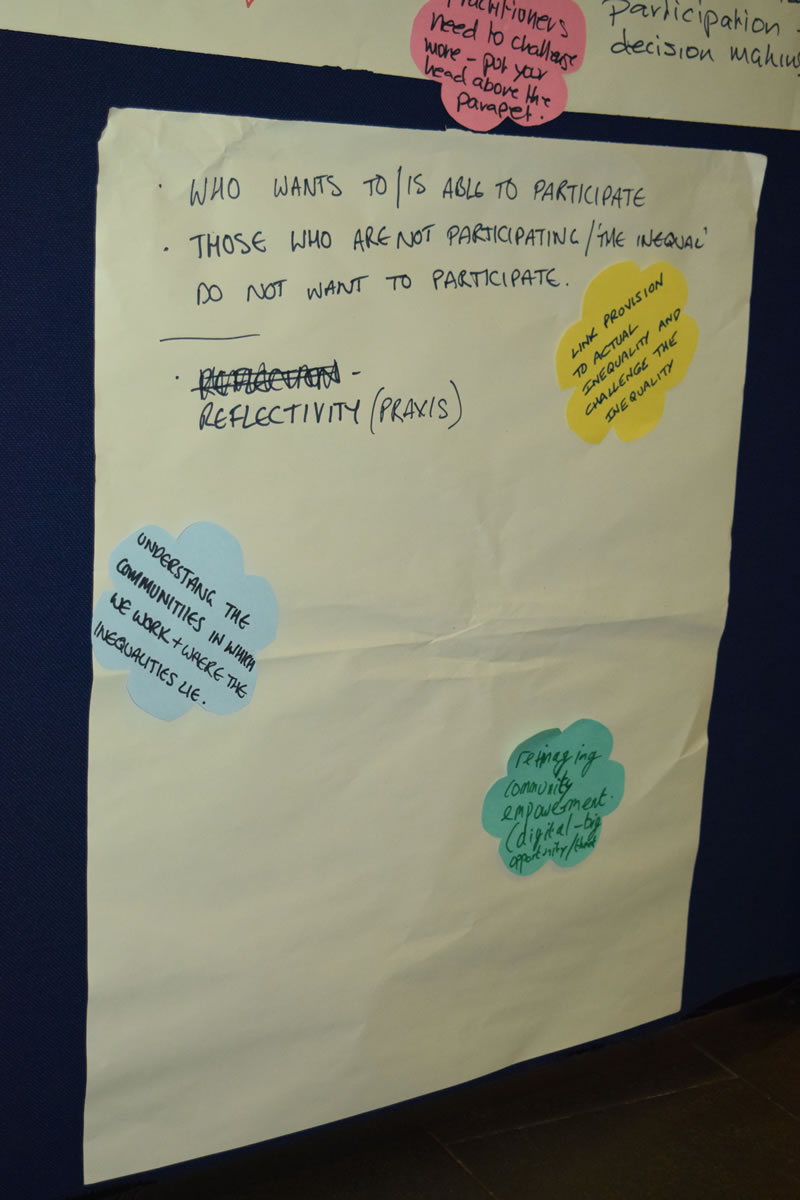 need to challenge
more - put your
head above the
parapet.
Participation -
decision making
· WHO WANTS TO/IS ABLE TO PARTICIPATE
· THOSE WHO ARE NOT PARTICIPATING/'THE INEQUAL'
DO NOT WANT TO PARTICIPATE.
LINK PROVISION
TO ACTUAL
INEQUALITY AND
CHALLENGE THE
INEQUALITY
· -
REFLECTIVITY (PRAXIS)
UNDERSTANG THE
COMMUNITIES IN WHICH
WE WORK + WHERE THE
INEQUALITIES LIE.
reimaging
community
empowerment.
(digital - big
opportunity/threat